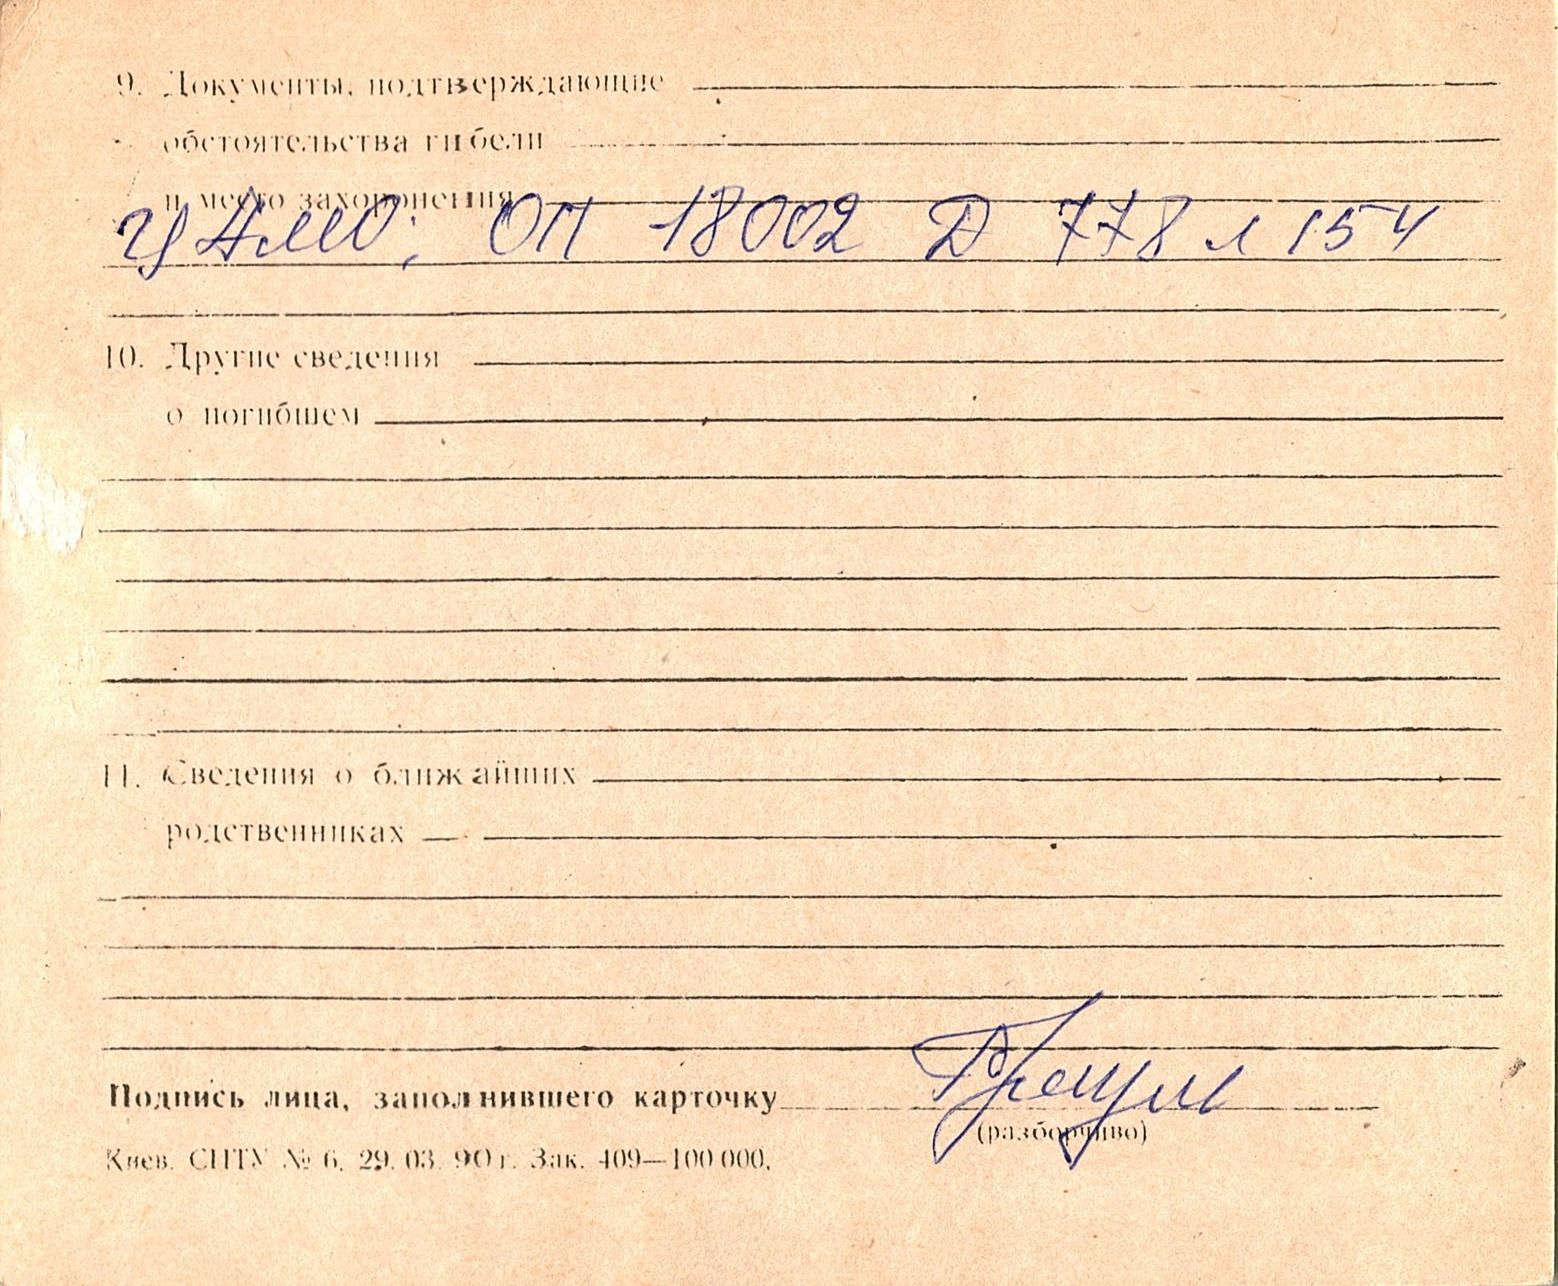 9. Документы, подтверждающие
обстоятельства гибели
и место захоронения
ЦАМО; ОП 18002 Д 778 л 154
10. Другие сведения
о погибшем
11. Сведения о ближайших
родственниках
Подпись лица, заполнившего карточку
(разборчиво)
Киев. СПТУ № 6. 29. 03. 90 г. Зак. 409—100 000.